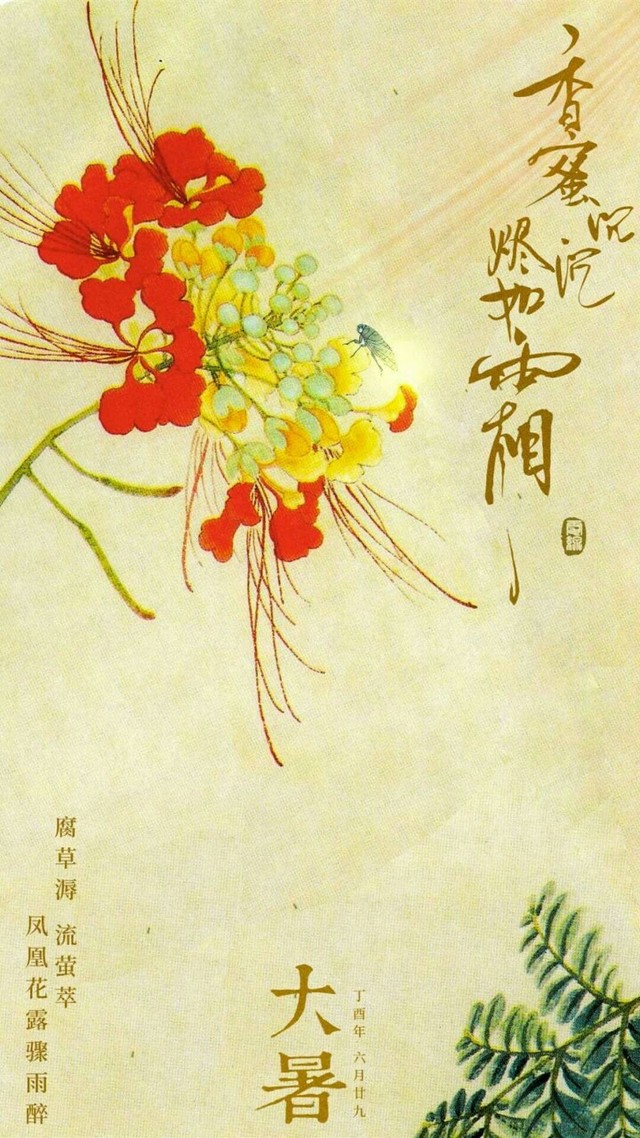 香蜜沉沉
烬如霜
腐草溽 流萤萃
凤凰花露骤雨醉
大暑
丁酉年 六月廿九